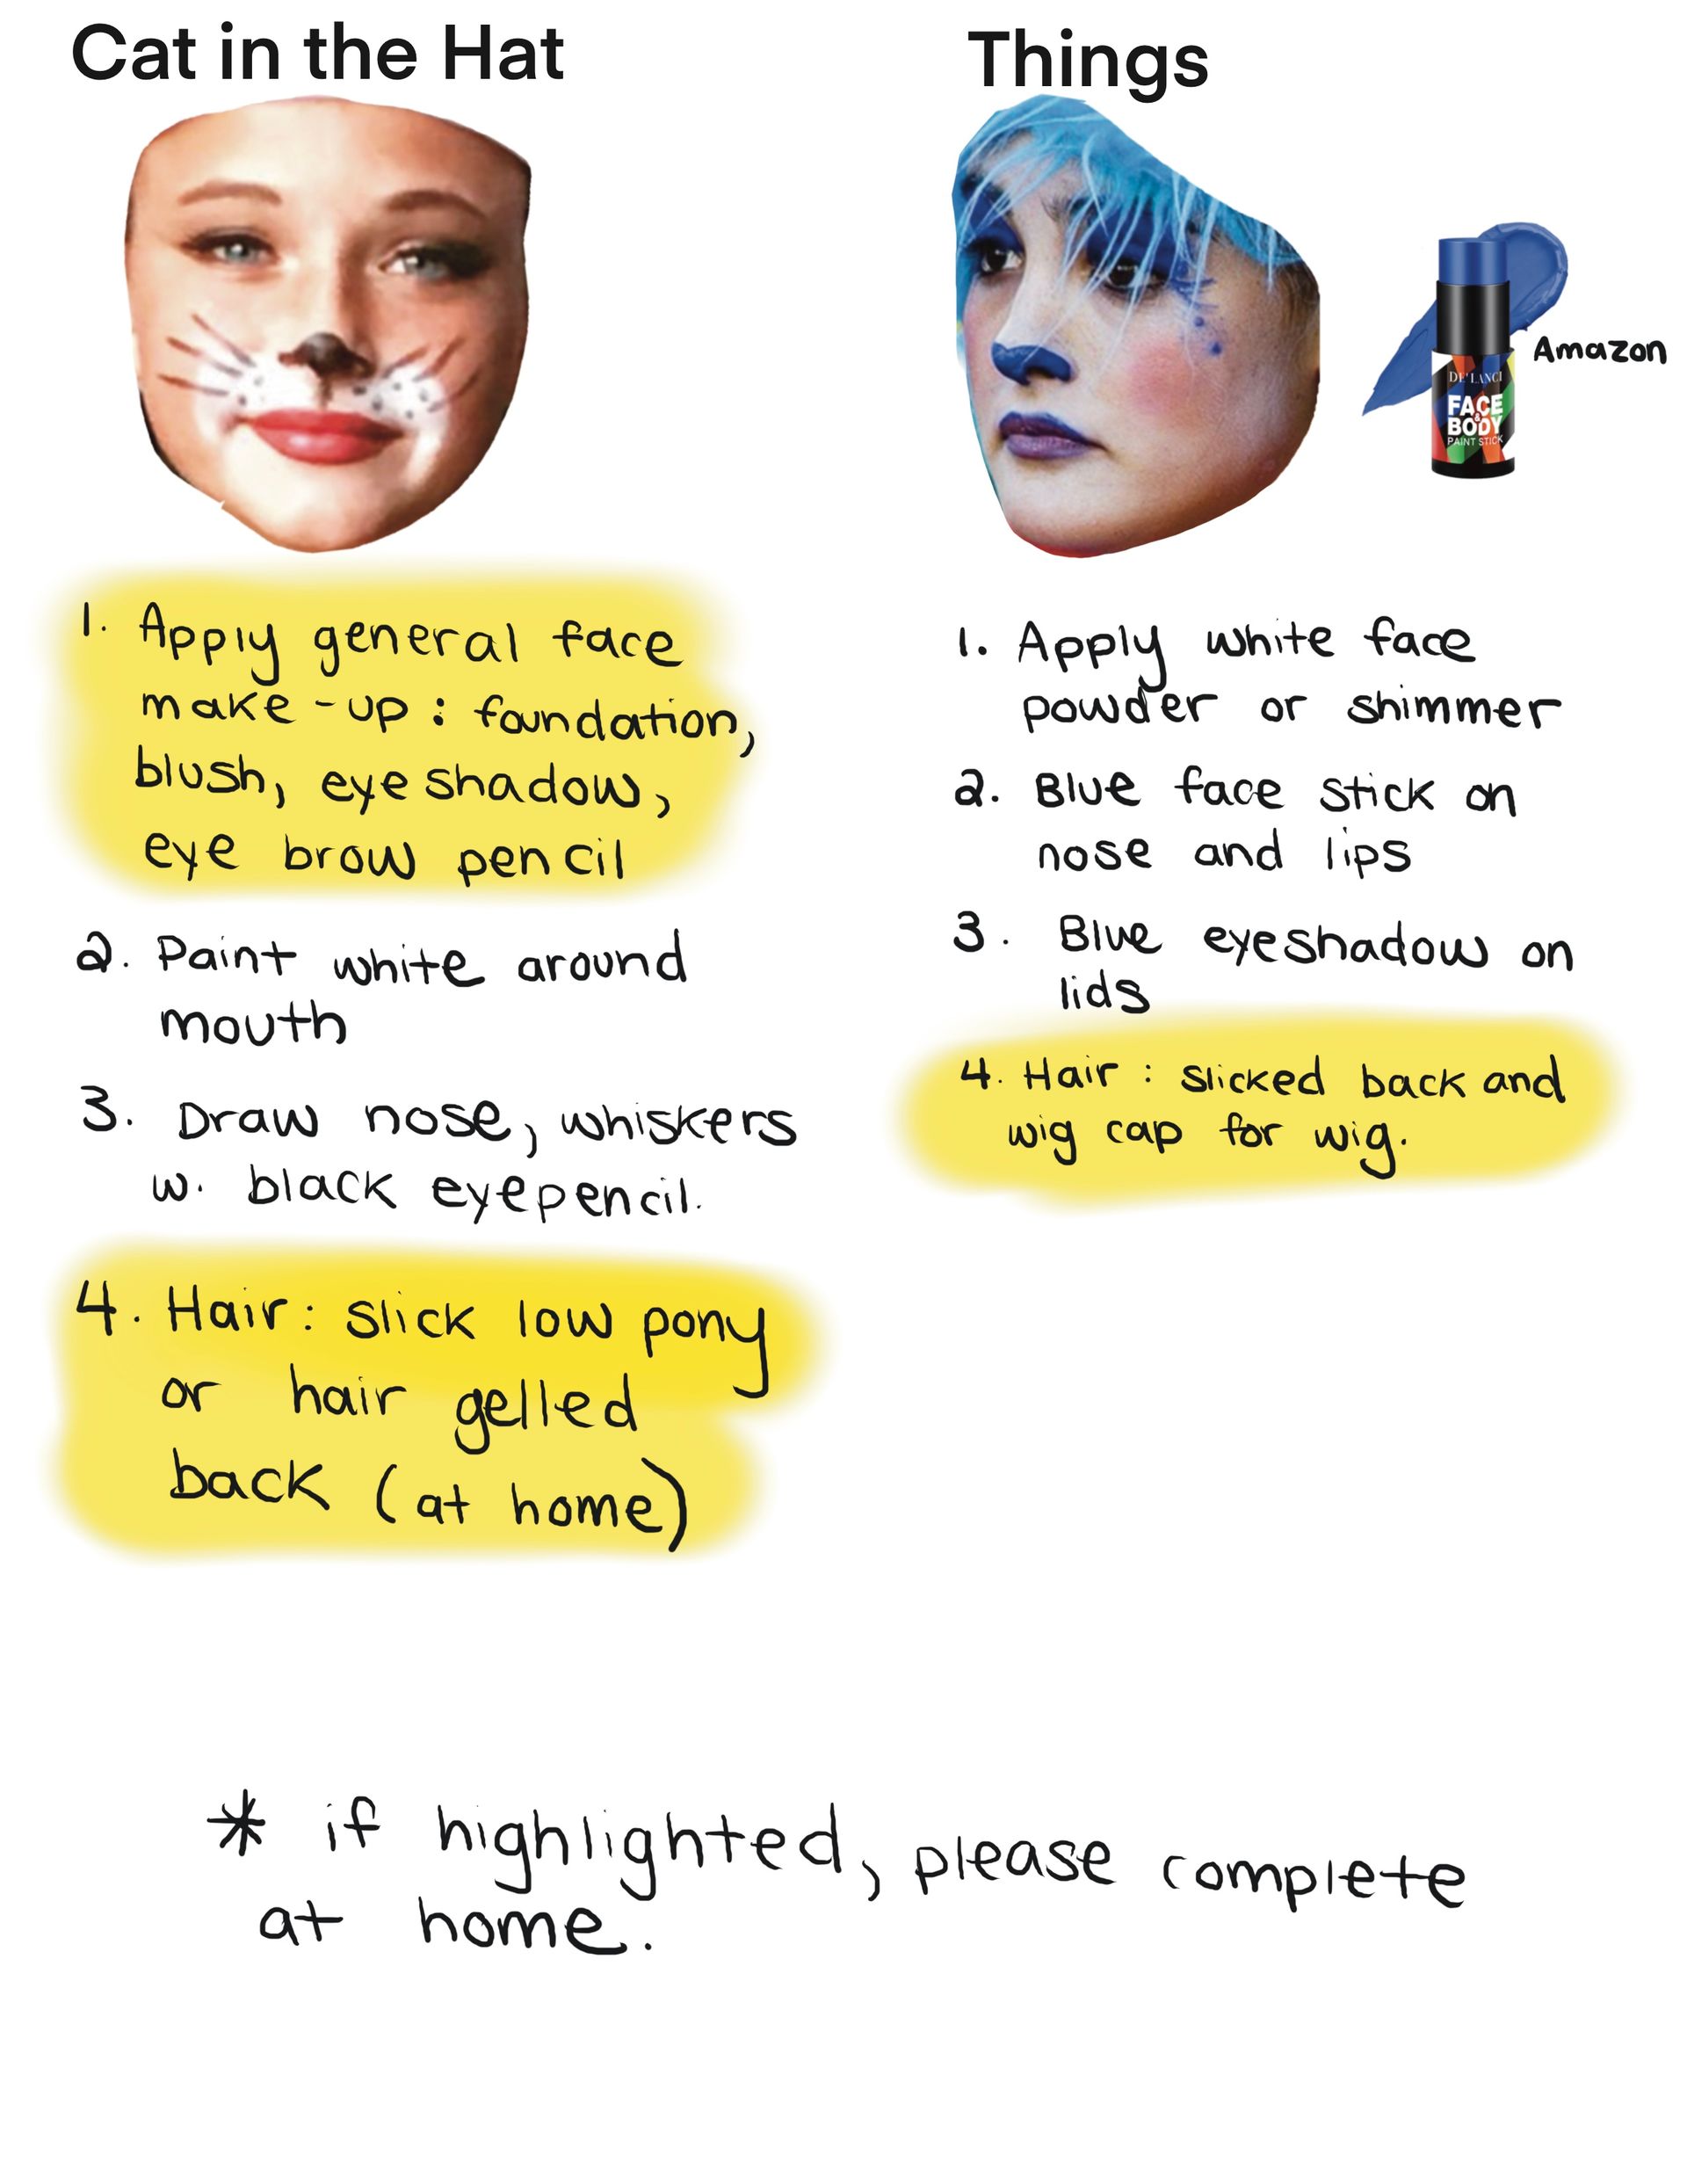 Cat in the Hat
1. Apply general face
make-up: foundation,
blush, eye shadow,
eye brow pencil
2. Paint white around
mouth
3. Draw nose, whiskers
w. black eyepencil.
4. Hair: slick low pony
or hair gelled
back (at home)
Things
Amazon
DE'LANCI
FACE
&
BODY
PAINT STICK
1. Apply white face
powder or shimmer
2. Blue face stick on
nose and lips
3. Blue eyeshadow on
lids
4. Hair: slicked back and
wig cap for wig.
* if highlighted, please complete
at home.